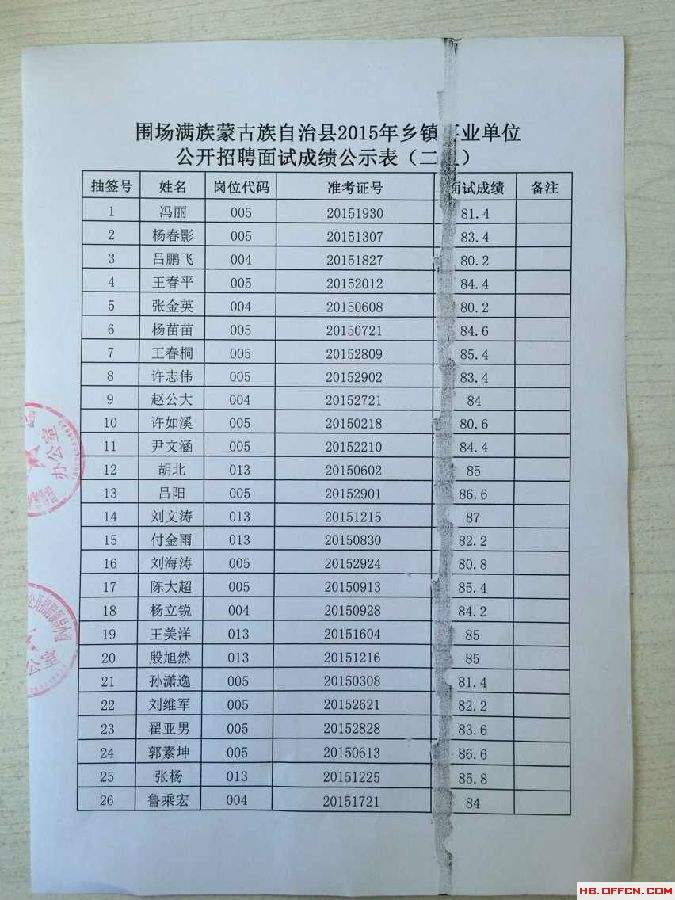 围场满族蒙古族自治县2015年乡镇 业单位
公开招聘面试成绩公示表（二 ）
抽签号 姓名 岗位代码 准考证号 面试成绩 备注
1 冯丽 005 20151930 81.4
2 杨春影 005 20151307 83.4
3 吕鹏飞 004 20151827 80.2
4 王春平 005 20152012 84.4
5 张金英 004 20150608 80.2
6 杨苗苗 005 20150721 84.6
7 王春桐 005 20152809 85.4
8 许志伟 005 20152902 83.4
9 赵公大 004 20152721 84
10 许如溪 005 20150218 80.6
11 尹文涵 005 20152210 84.4
12 胡北 013 20150602 85
13 吕阳 005 20152901 86.6
14 刘文涛 013 20151215 87
15 付金雨 013 20150830 82.2
16 刘海涛 005 20152924 80.8
17 陈大超 005 20150913 85.4
18 杨立锐 004 20150928 84.2
19 王美洋 013 20151604 85
20 殷旭然 013 20151216 85
21 孙潇逸 005 20150308 81.4
22 刘维军 005 20152621 82.2
23 翟亚男 005 20152828 83.6
24 郭素坤 005 20150613 86.6
25 张杨 013 20151225 85.8
26 鲁乘宏 004 20151721 84
办公室
HB.OFFCN.COM